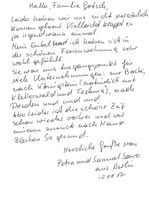 Hallo, Familie Gotsch,
Leider haben wir uns nicht persönlich
kennengelernt. Vielleicht klappt es
ja irgendwann einmal.
Mein Enkel und ich haben sich in
der schönen Ferienwohnung sehr
wohl gefühlt.
Sie war uns Ausgangspunkt für
viele Unternehmungen: zur Bastei,
nach Königstein (natürlich mit
Kletterwald und Festung), nach
Dresden und und und.
Also leider ist die schöne Zeit
schon wieder vorbei und wir
müssen zurück nach Hause
Bleiben Sie gesund.
Herzliche Grüße von
Petra und Samuel
aus Berlin